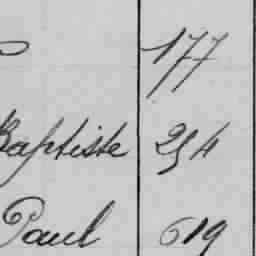 177
Baptiste 254
Paul 619